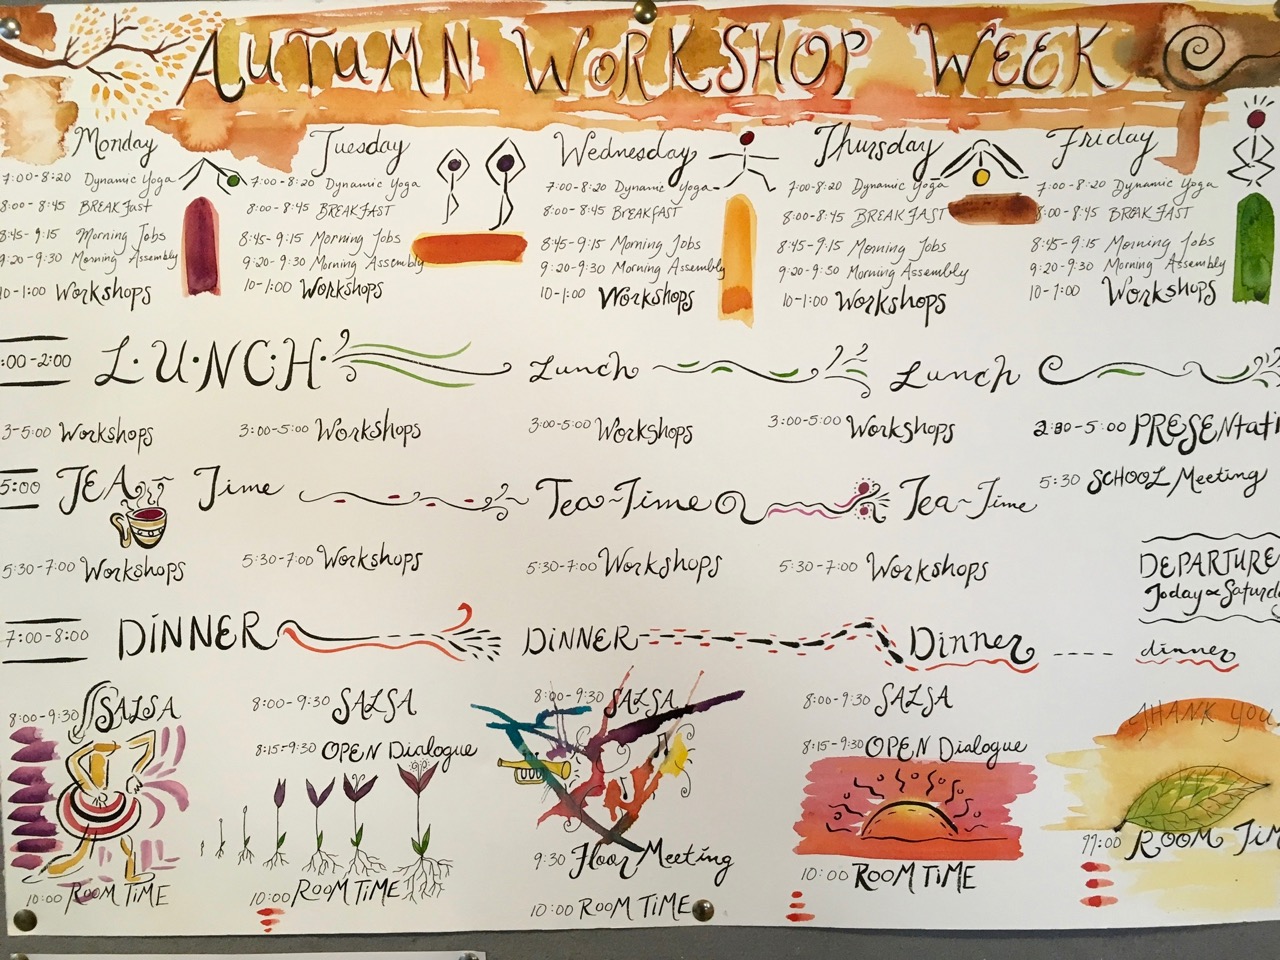 AUTUMN WORKSHOP WEEK
Monday
7:00-8:20 Dynamic Yoga
8:00-8:45 BREAKFast
8:45-9:15 Morning Jobs
9:20-9:30 Morning Assembly
10-1:00 Workshops
Tuesday
7:00-8:20 Dynamic Yoga
8:00-8:45 BREAKFAST
8:45-9:15 Morning Jobs
9:20-9:30 Morning Assembly
10-1:00 Workshops
Wednesday
7:00-8:20 Dynamic Yoga
8:00-8:45 BREAKFAST
8:45-9:15 Morning Jobs
9:20-9:30 Morning Assembly
10-1:00 Workshops
Thursday
7:00-8:20 Dynamic Yoga
8:00-8:45 BREAKFAST
8:45-9:15 Morning Jobs
9:20-9:30 Morning Assembly
10-1:00 Workshops
Friday
7:00-8:20 Dynamic Yoga
8:00-8:45 BREAKFAST
8:45-9:15 Morning Jobs
9:20-9:30 Morning Assembly
10-1:00 Workshops
:00-2:00 L·U·N·C·H· Lunch Lunch
3-5:00 Workshops
3:00-5:00 Workshops
3:00-5:00 Workshops
3:00-5:00 Workshops
5:00 PRESENtati
5:00 TEA Time Tea~Time Tea~Time
5:30 SCHOOL Meeting
5:30-7:00 Workshops
5:30-7:00 Workshops
5:30-7:00 Workshops
5:30-7:00 Workshops
DEPARTURE
Today or Saturda
7:00-8:00 DINNER DINNER Dinner dinner
8:00-9:30 SALSA
10:00 ROOM TIME
8:00-9:30 SALSA
8:15-9:30 OPEN Dialogue
10:00 ROOM TIME
8:00-9:30 SALSA
9:30 Floor Meeting
10:00 ROOM TIME
8:00-9:30 SALSA
8:15-9:30 OPEN Dialogue
10:00 ROOM TIME
THANK YOU
11:00 ROOM TIM